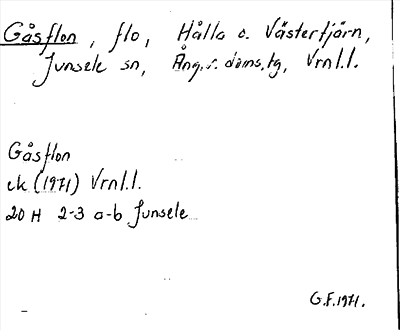 Gåsflon, flo, Hålla o. Västertjärn,
Junsele sn, Ång. s. doms.tg, Vrnl.l.
Gåsflon
ek (1971) Vrnl.l.
20 H 2-3 a-b Junsele
G.F. 1971.